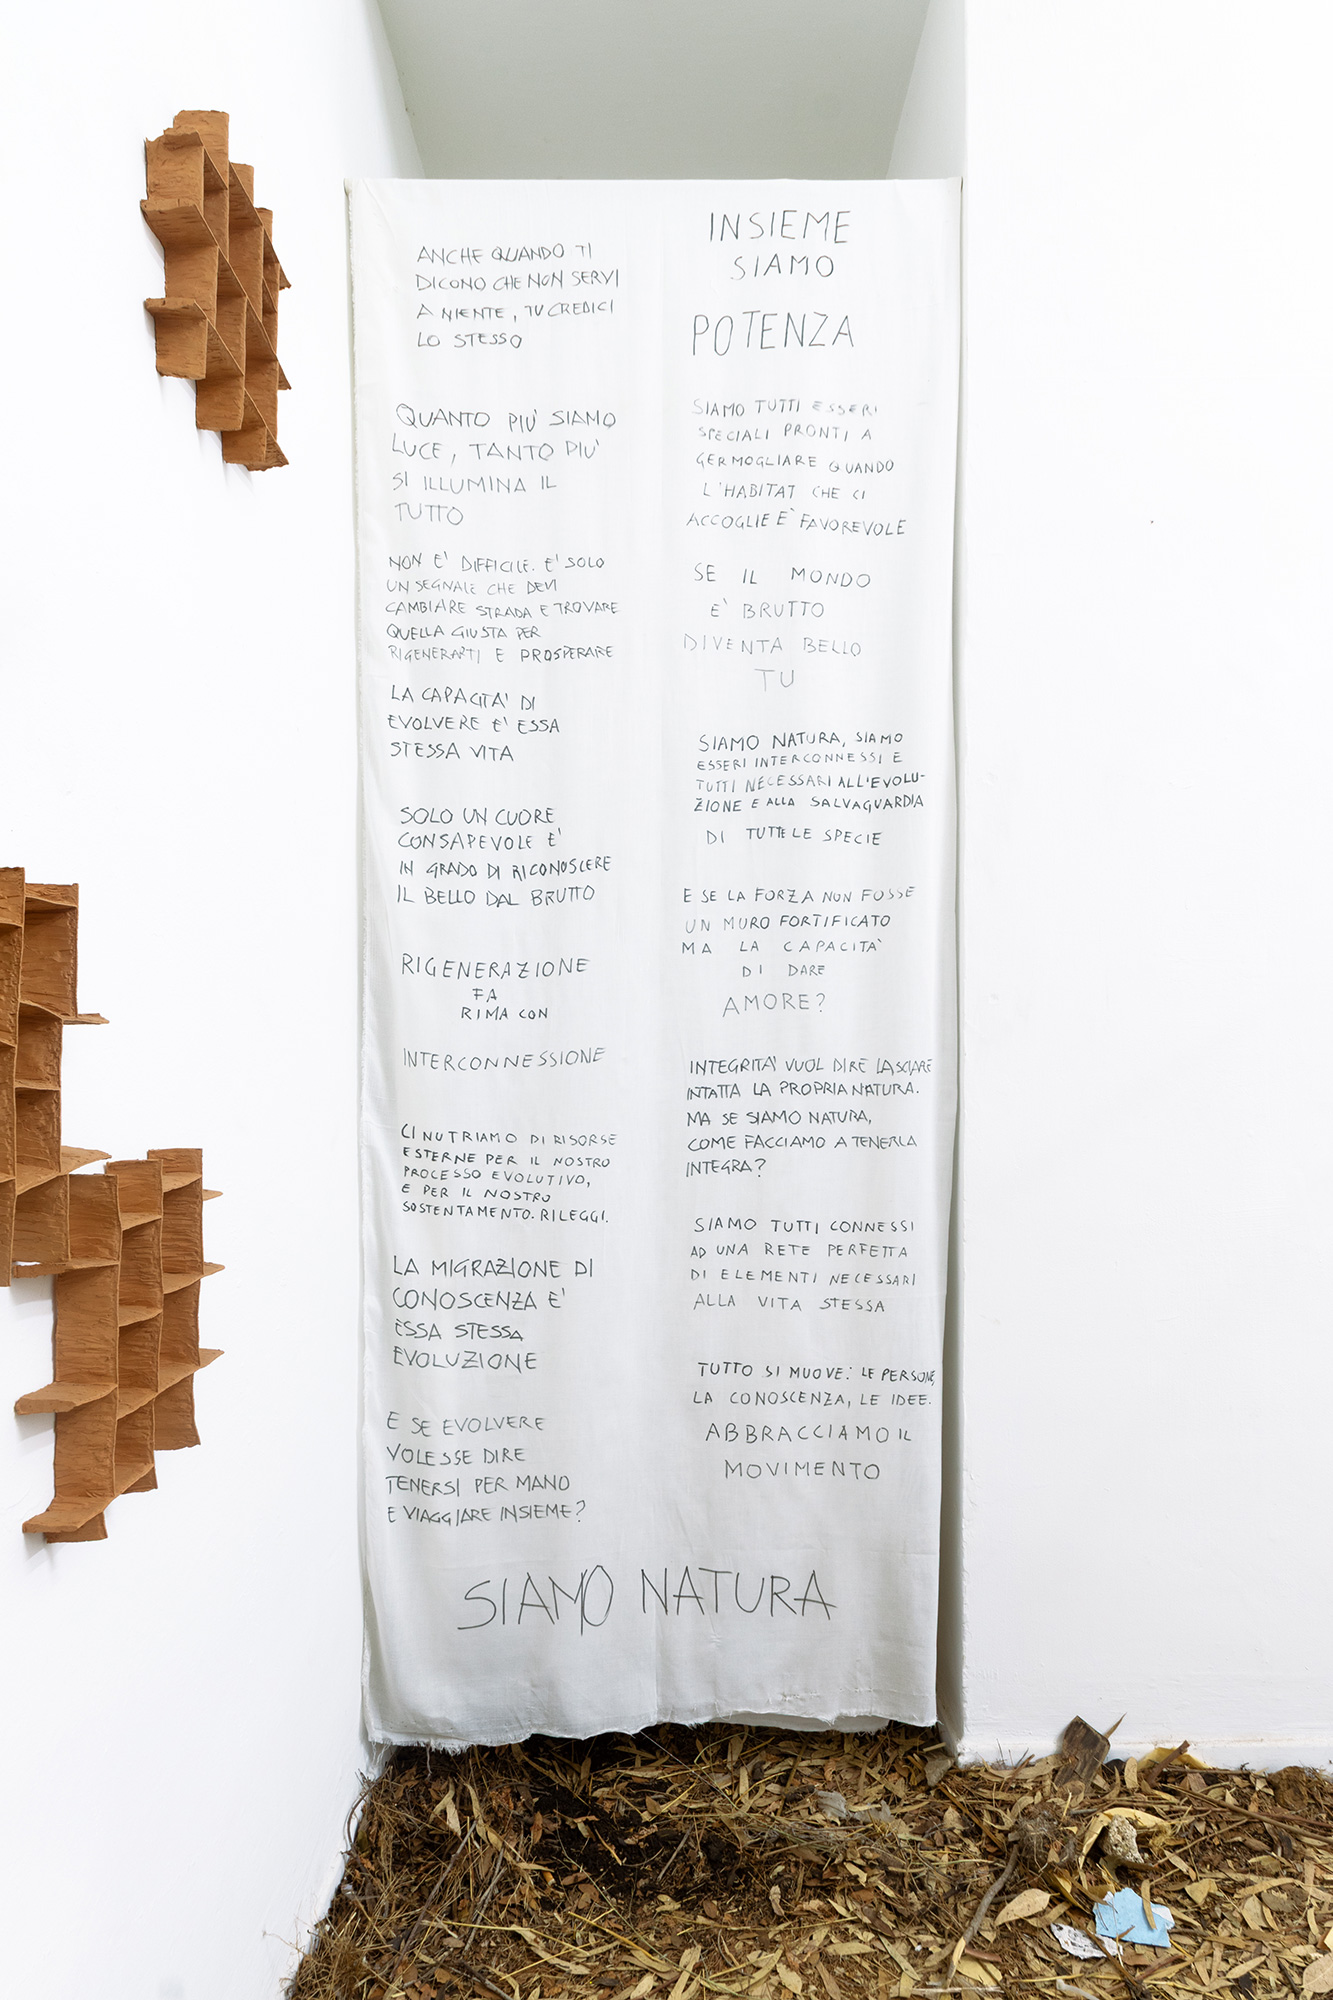 ANCHE QUANDO TI
DICONO CHE NON SERVI
A NIENTE, TU CREDICI
LO STESSO
QUANTO PIU' SIAMO
LUCE, TANTO PIU'
SI ILLUMINA IL
TUTTO
NON E' DIFFICILE. E' SOLO
UN SEGNALE CHE DEVI
CAMBIARE STRADA E TROVARE
QUELLA GIUSTA PER
RIGENERARTI E PROSPERARE
LA CAPACITA' DI
EVOLVERE E' ESSA
STESSA VITA
SOLO UN CUORE
CONSAPEVOLE E'
IN GRADO DI RICONOSCERE
IL BELLO DAL BRUTTO
RIGENERAZIONE
FA
RIMA CON
INTERCONNESSIONE
CI NUTRIAMO DI RISORSE
ESTERNE PER IL NOSTRO
PROCESSO EVOLUTIVO,
E PER IL NOSTRO
SOSTENTAMENTO. RILEGGI.
LA MIGRAZIONE DI
CONOSCENZA E'
ESSA STESSA
EVOLUZIONE
E SE EVOLVERE
VOLESSE DIRE
TENERSI PER MANO
E VIAGGIARE INSIEME?
INSIEME
SIAMO
POTENZA
SIAMO TUTTI ESSERI
SPECIALI PRONTI A
GERMOGLIARE QUANDO
L'HABITAT CHE CI
ACCOGLIE E' FAVOREVOLE
SE IL MONDO
E' BRUTTO
DIVENTA BELLO
TU
SIAMO NATURA, SIAMO
ESSERI INTERCONNESSI E
TUTTI NECESSARI ALL'EVOLU-
ZIONE E ALLA SALVAGUARDIA
DI TUTTE LE SPECIE
E SE LA FORZA NON FOSSE
UN MURO FORTIFICATO
MA LA CAPACITA'
DI DARE
AMORE?
INTEGRITA' VUOL DIRE LASCIARE
INTATTA LA PROPRIA NATURA.
MA SE SIAMO NATURA,
COME FACCIAMO A TENERLA
INTEGRA?
SIAMO TUTTI CONNESSI
AD UNA RETE PERFETTA
DI ELEMENTI NECESSARI
ALLA VITA STESSA
TUTTO SI MUOVE: LE PERSONE,
LA CONOSCENZA, LE IDEE.
ABBRACCIAMO IL
MOVIMENTO
SIAMO NATURA